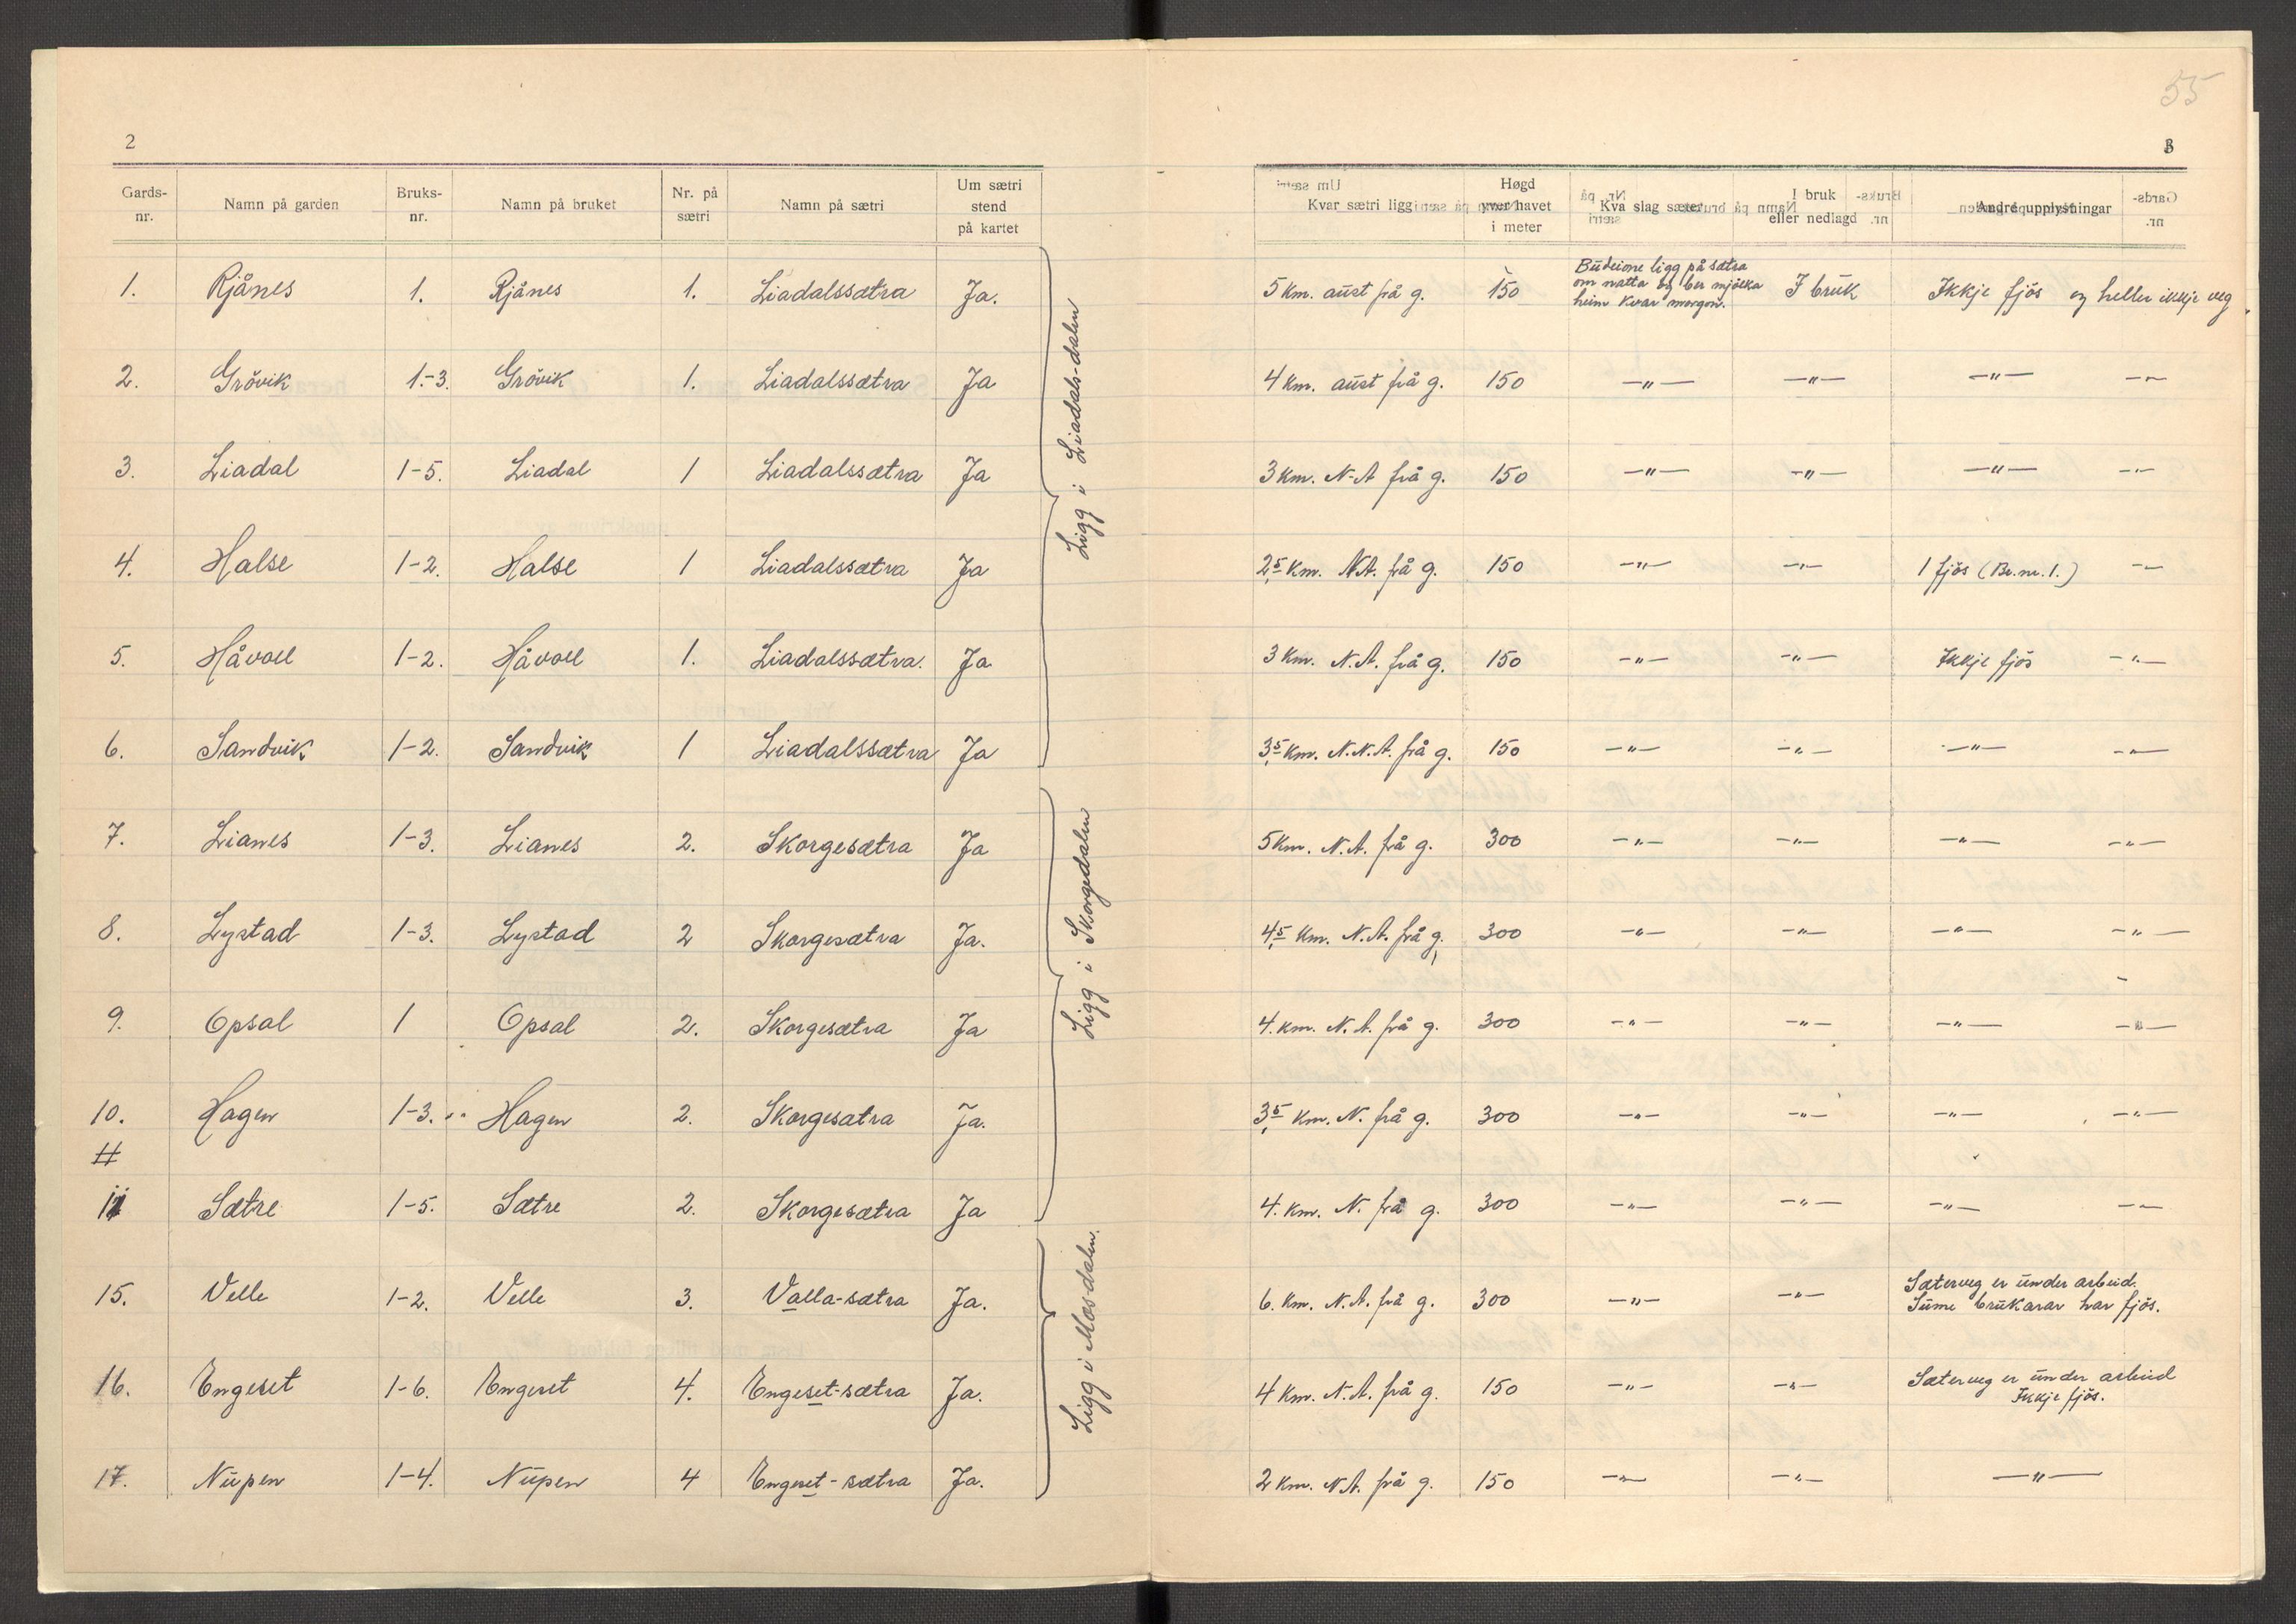 55
2
3
Gards-nr. Namn på garden Bruks-nr. Namn på bruket Nr. på sætri Namn på sætri Um sætri stend på kartet Kvar sætri ligg Høgd yver havet i meter Kva slag sæter I bruk eller nedlagd Andre upplysningar
1. Rjånes 1. Rjånes 1. Liadalssætra Ja. 5 km. aust frå g. 150 Budeione ligg på sætra om natta og ber mjølka heim kvar morgon. I bruk Ikkje fjös og heller ikkje veg.
2. Grövik 1.-3. Grövik 1. Liadalssætra Ja 4 km. aust frå g. 150 —"— —"— —"— —"—
3. Liadal 1-5. Liadal 1 Liadalssætra Ja 3 km. N-A frå g. 150 —"— —"— —"— —"—
4. Halse 1-2. Halse 1 Liadalssætra Ja 2,5 km. N.A. frå g. 150 —"— —"— 1 fjös (Br.nr.1.) —"—
5. Håvoll 1-2. Håvoll 1. Liadalssætra. Ja 3 km. N.A. frå g. 150 —"— —"— Ikkje fjös —"—
6. Sandvik 1-2. Sandvik 1 Liadalssætra Ja 3,5 km. N.N.A. frå g. 150 —"— —"— —"— —"—
Ligg i Liadals-dalen
7. Lianes 1-3. Lianes 2. Skorgesætra Ja 5 km. N.A. frå g. 300 —"— —"— —"— —"—
8. Lystad 1-3. Lystad 2 Skorgesætra Ja. 4,5 km. N.A. frå g, 300 —"— —"— —"— —"—
9. Opsal 1 Opsal 2. Skorgesætra Ja 4. km. N.A. frå g. 300 —"— —"— —"— —"—
10. Hagen 1-3. Hagen 2. Skorgesætra Ja. 3,5 km. N. frå g. 300 —"— —"— —"— —"—
11 Sætre 1-5. Sætre 2. Skorgesætra Ja 4. km. N. frå g. 300 —"— —"— —"— —"—
Ligg i Skorgedalen
15. Velle 1-2. Velle 3. Valla-sætra Ja. 6. km. N.A. frå g. 300 —"— —"— Sæterveg er under arbeid. Sume brukarar har fjös.
16. Engeset 1-6. Engeset 4. Engeset-sætra Ja. 4 km. N.A. frå g. 150 —"— —"— Sæterveg er under arbeid Ikkje fjös.
17. Nupen 1-4. Nupen 4 Engeset-sætra Ja. 2 km. N.A. frå g. 150 —"— —"— —"—
Ligg i Mosdalen.